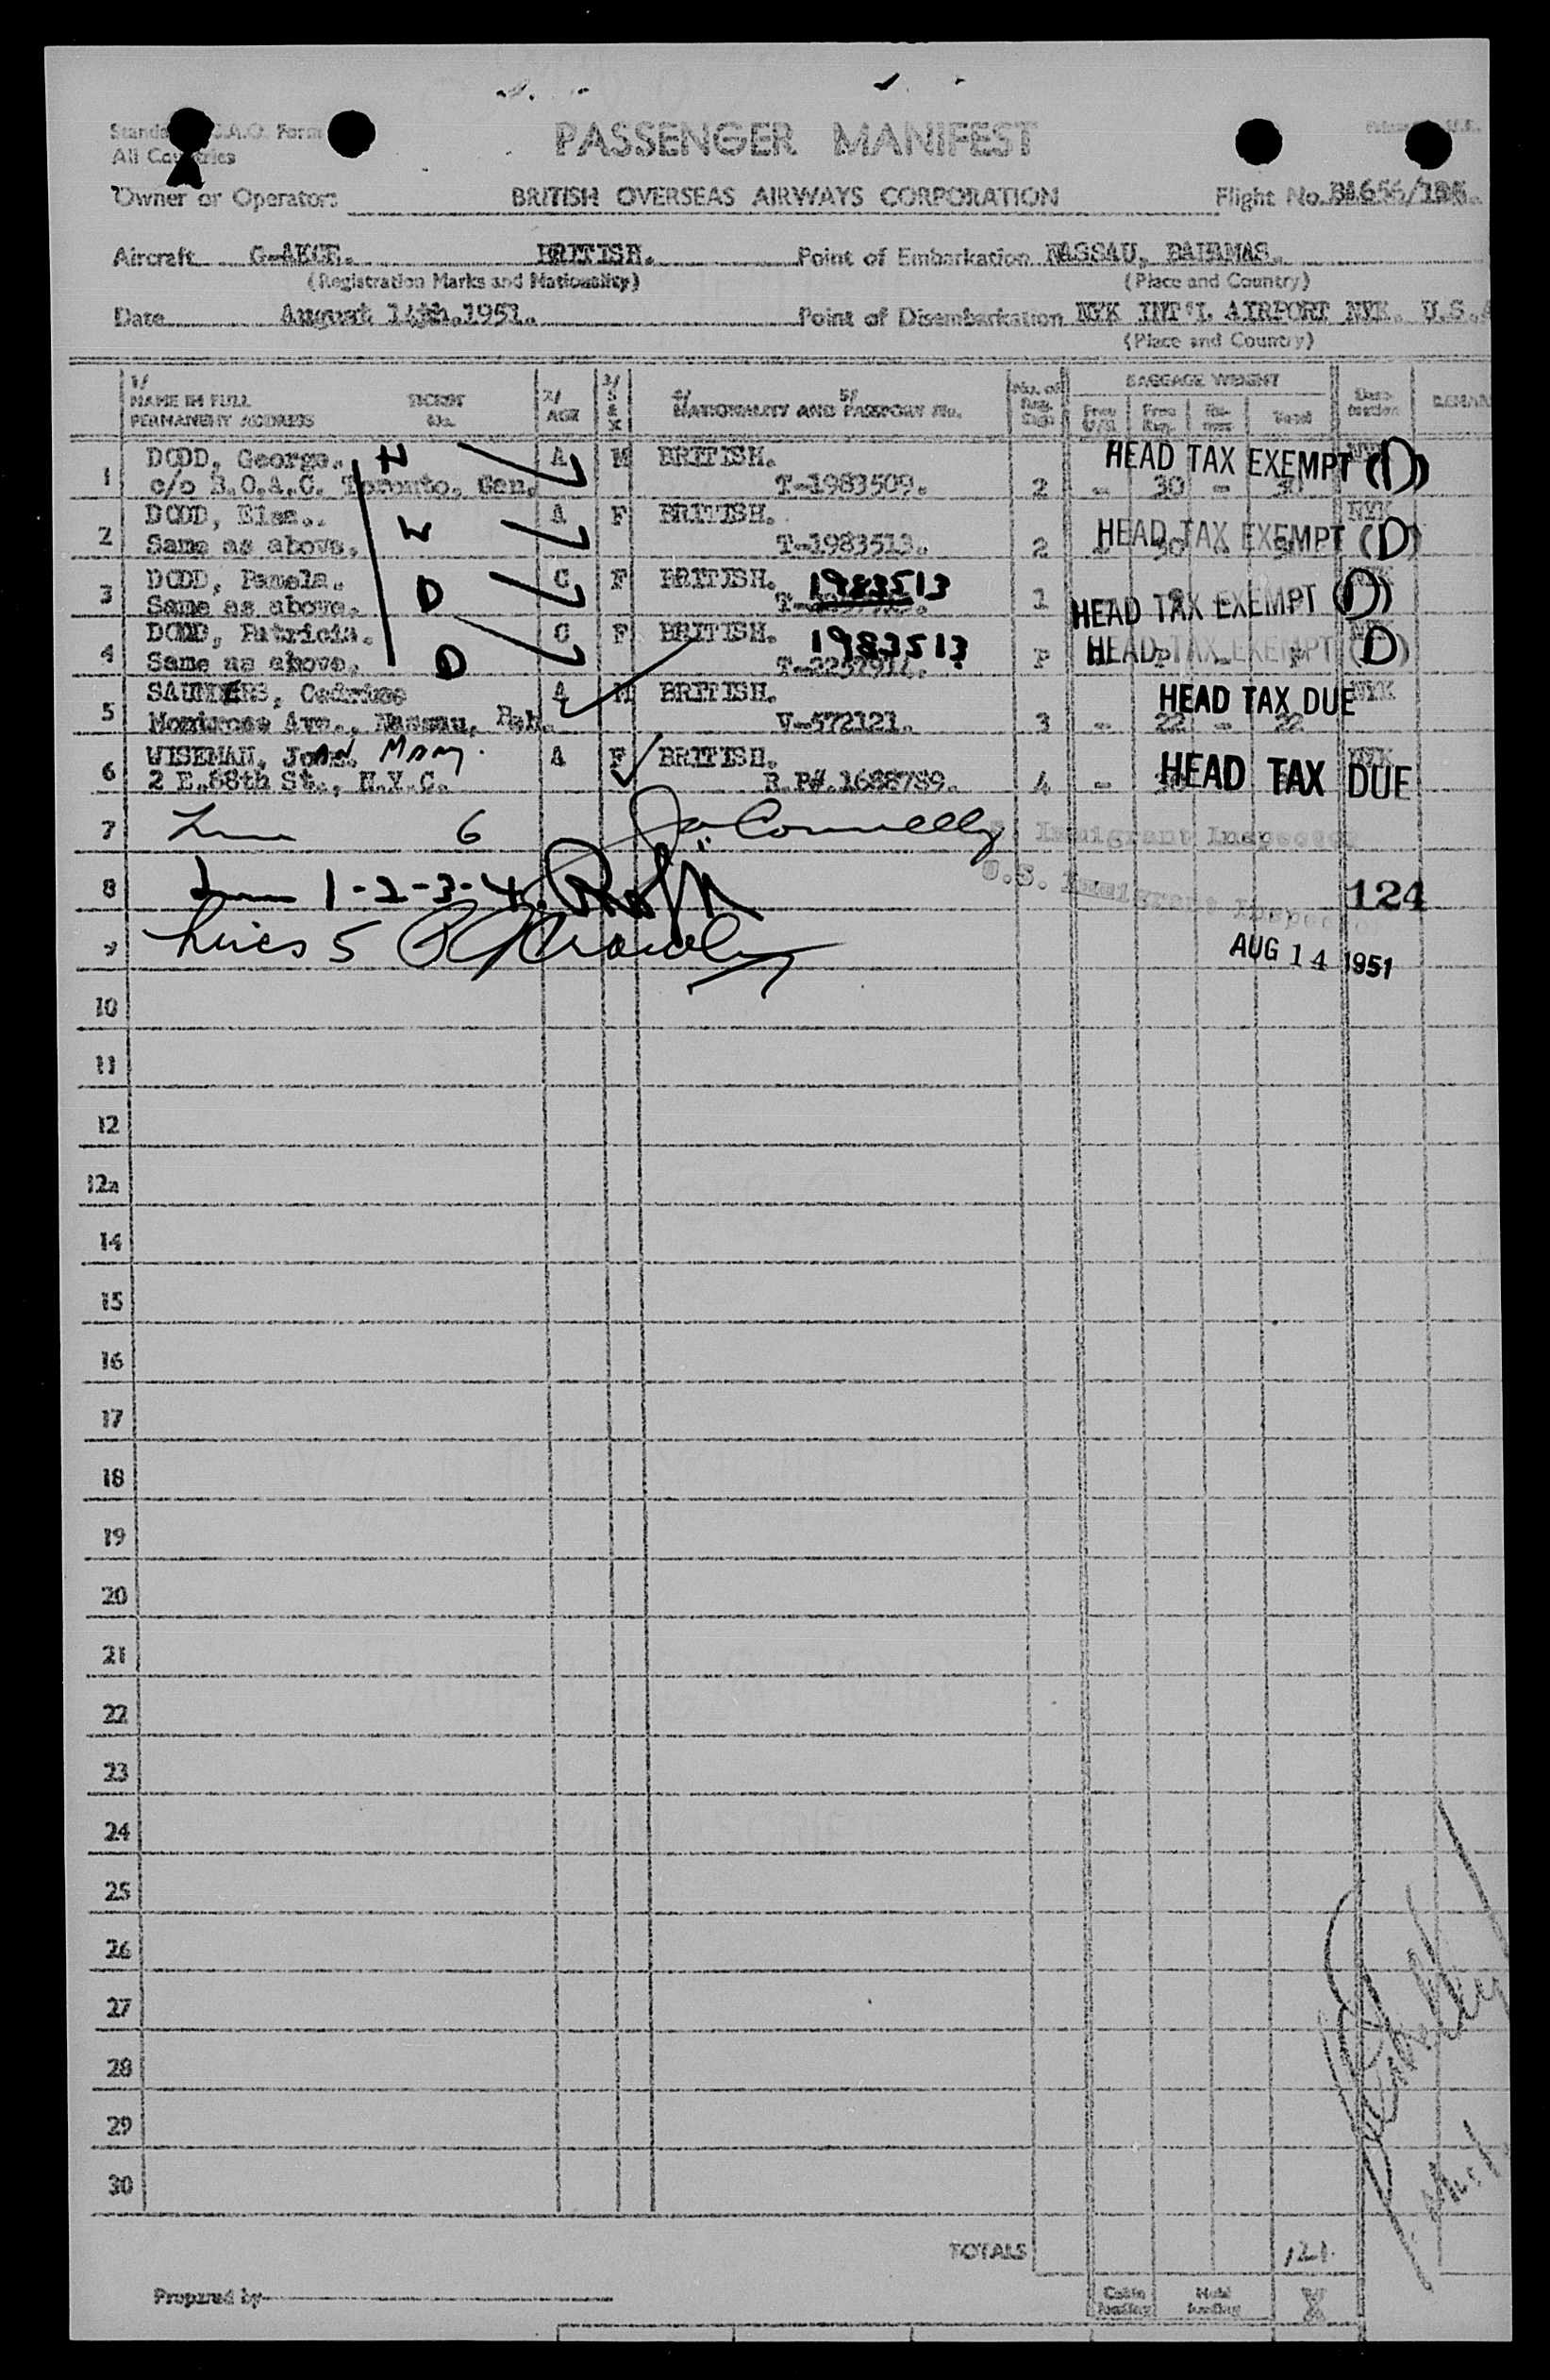 All Countries
PASSENGER MANIFEST
Owner or Operators BRITISH OVERSEAS AIRWAYS CORPORATION Flight No.
Aircraft BRITISH. Point of Embarkation NASSAU, BAHAMAS.
(Registration Marks and Nationality) (Place and Country)
Date August 14th.1951. Point of Disembarkation NYK INT'L AIRPORT NYK. U.S.A
(Place and Country)
1/ NAME IN FULL TICKET No. 2/ AGE 3/ SEX 4/ 5/ NATIONALITY AND PASSPORT No. No. of BAGGAGE WEIGHT
PERMANENT ADDRESS Free Free Total
1 DODD, George. H A M BRITISH. HEAD TAX EXEMPT (D)
c/o B.O.A.C. Toronto. T-1983509. 2 - 30 -
2 DODD, W A F BRITISH. NYK
Same as above. T-1983513. 2 HEAD TAX EXEMPT (D)
3 DODD, Pamela. D C F BRITISH. 1983513
Same as above. 1 HEAD TAX EXEMPT (D)
4 DODD, Patricia. C F BRITISH. 1983513
Same as above. D P HEAD TAX EXEMPT (D)
5 SAUNDERS, A M BRITISH. HEAD TAX DUE NYK
Montrose Ave., Nassau, Bah. V-572121. 3 - 22 - 22
6 WISEMAN, Joan Mary. A F BRITISH. HEAD TAX DUE
2 E.88th St., N.Y.C. R.P#.1688789. 4 -
7 Line 6 Connelly Immigrant Inspector
8 Line 1-2-3-4. U.S. Immigrant Inspector 124
9 Lines 5
AUG 14 1951
10
11
12
12a
14
15
16
17
18
19
20
21
22
23
24
25
26
27
28
29
30
TOTALS 121.
Prepared by